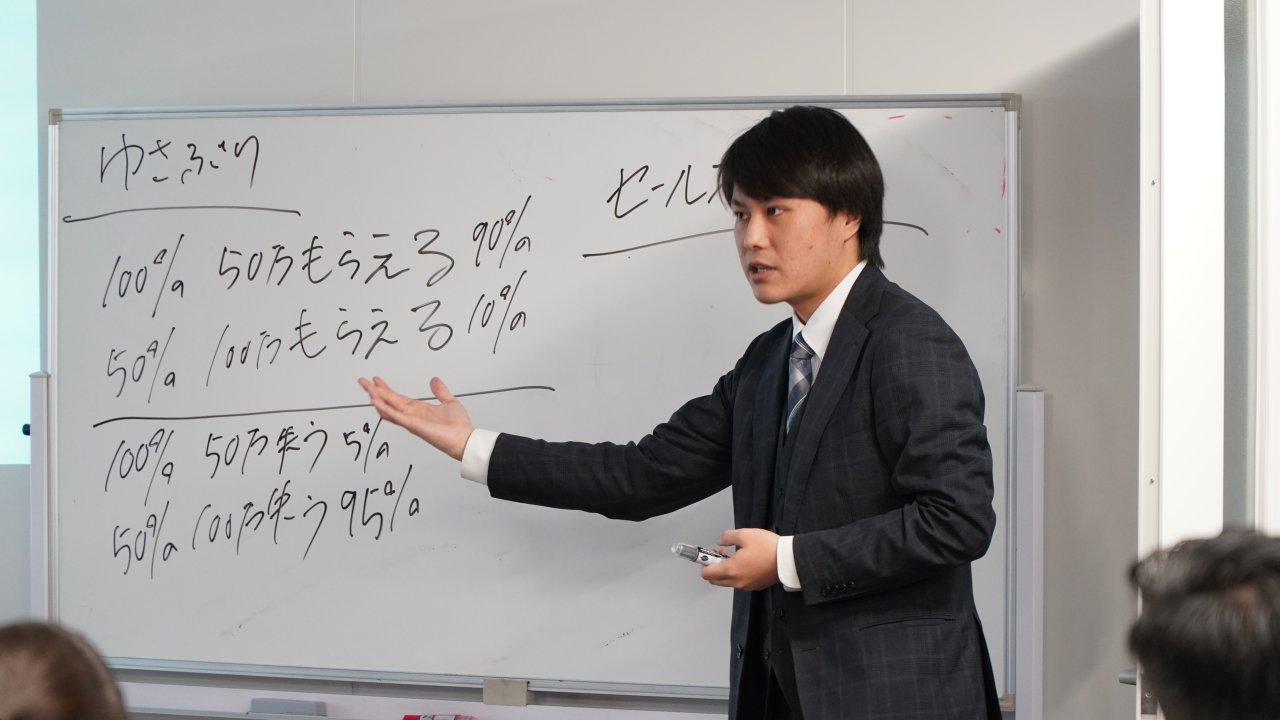 ゆさぶり
100% 50万もらえる 90%
50% 100万もらえる 10%
100% 50万失う 5%
50% 100万失う 95%
セールス